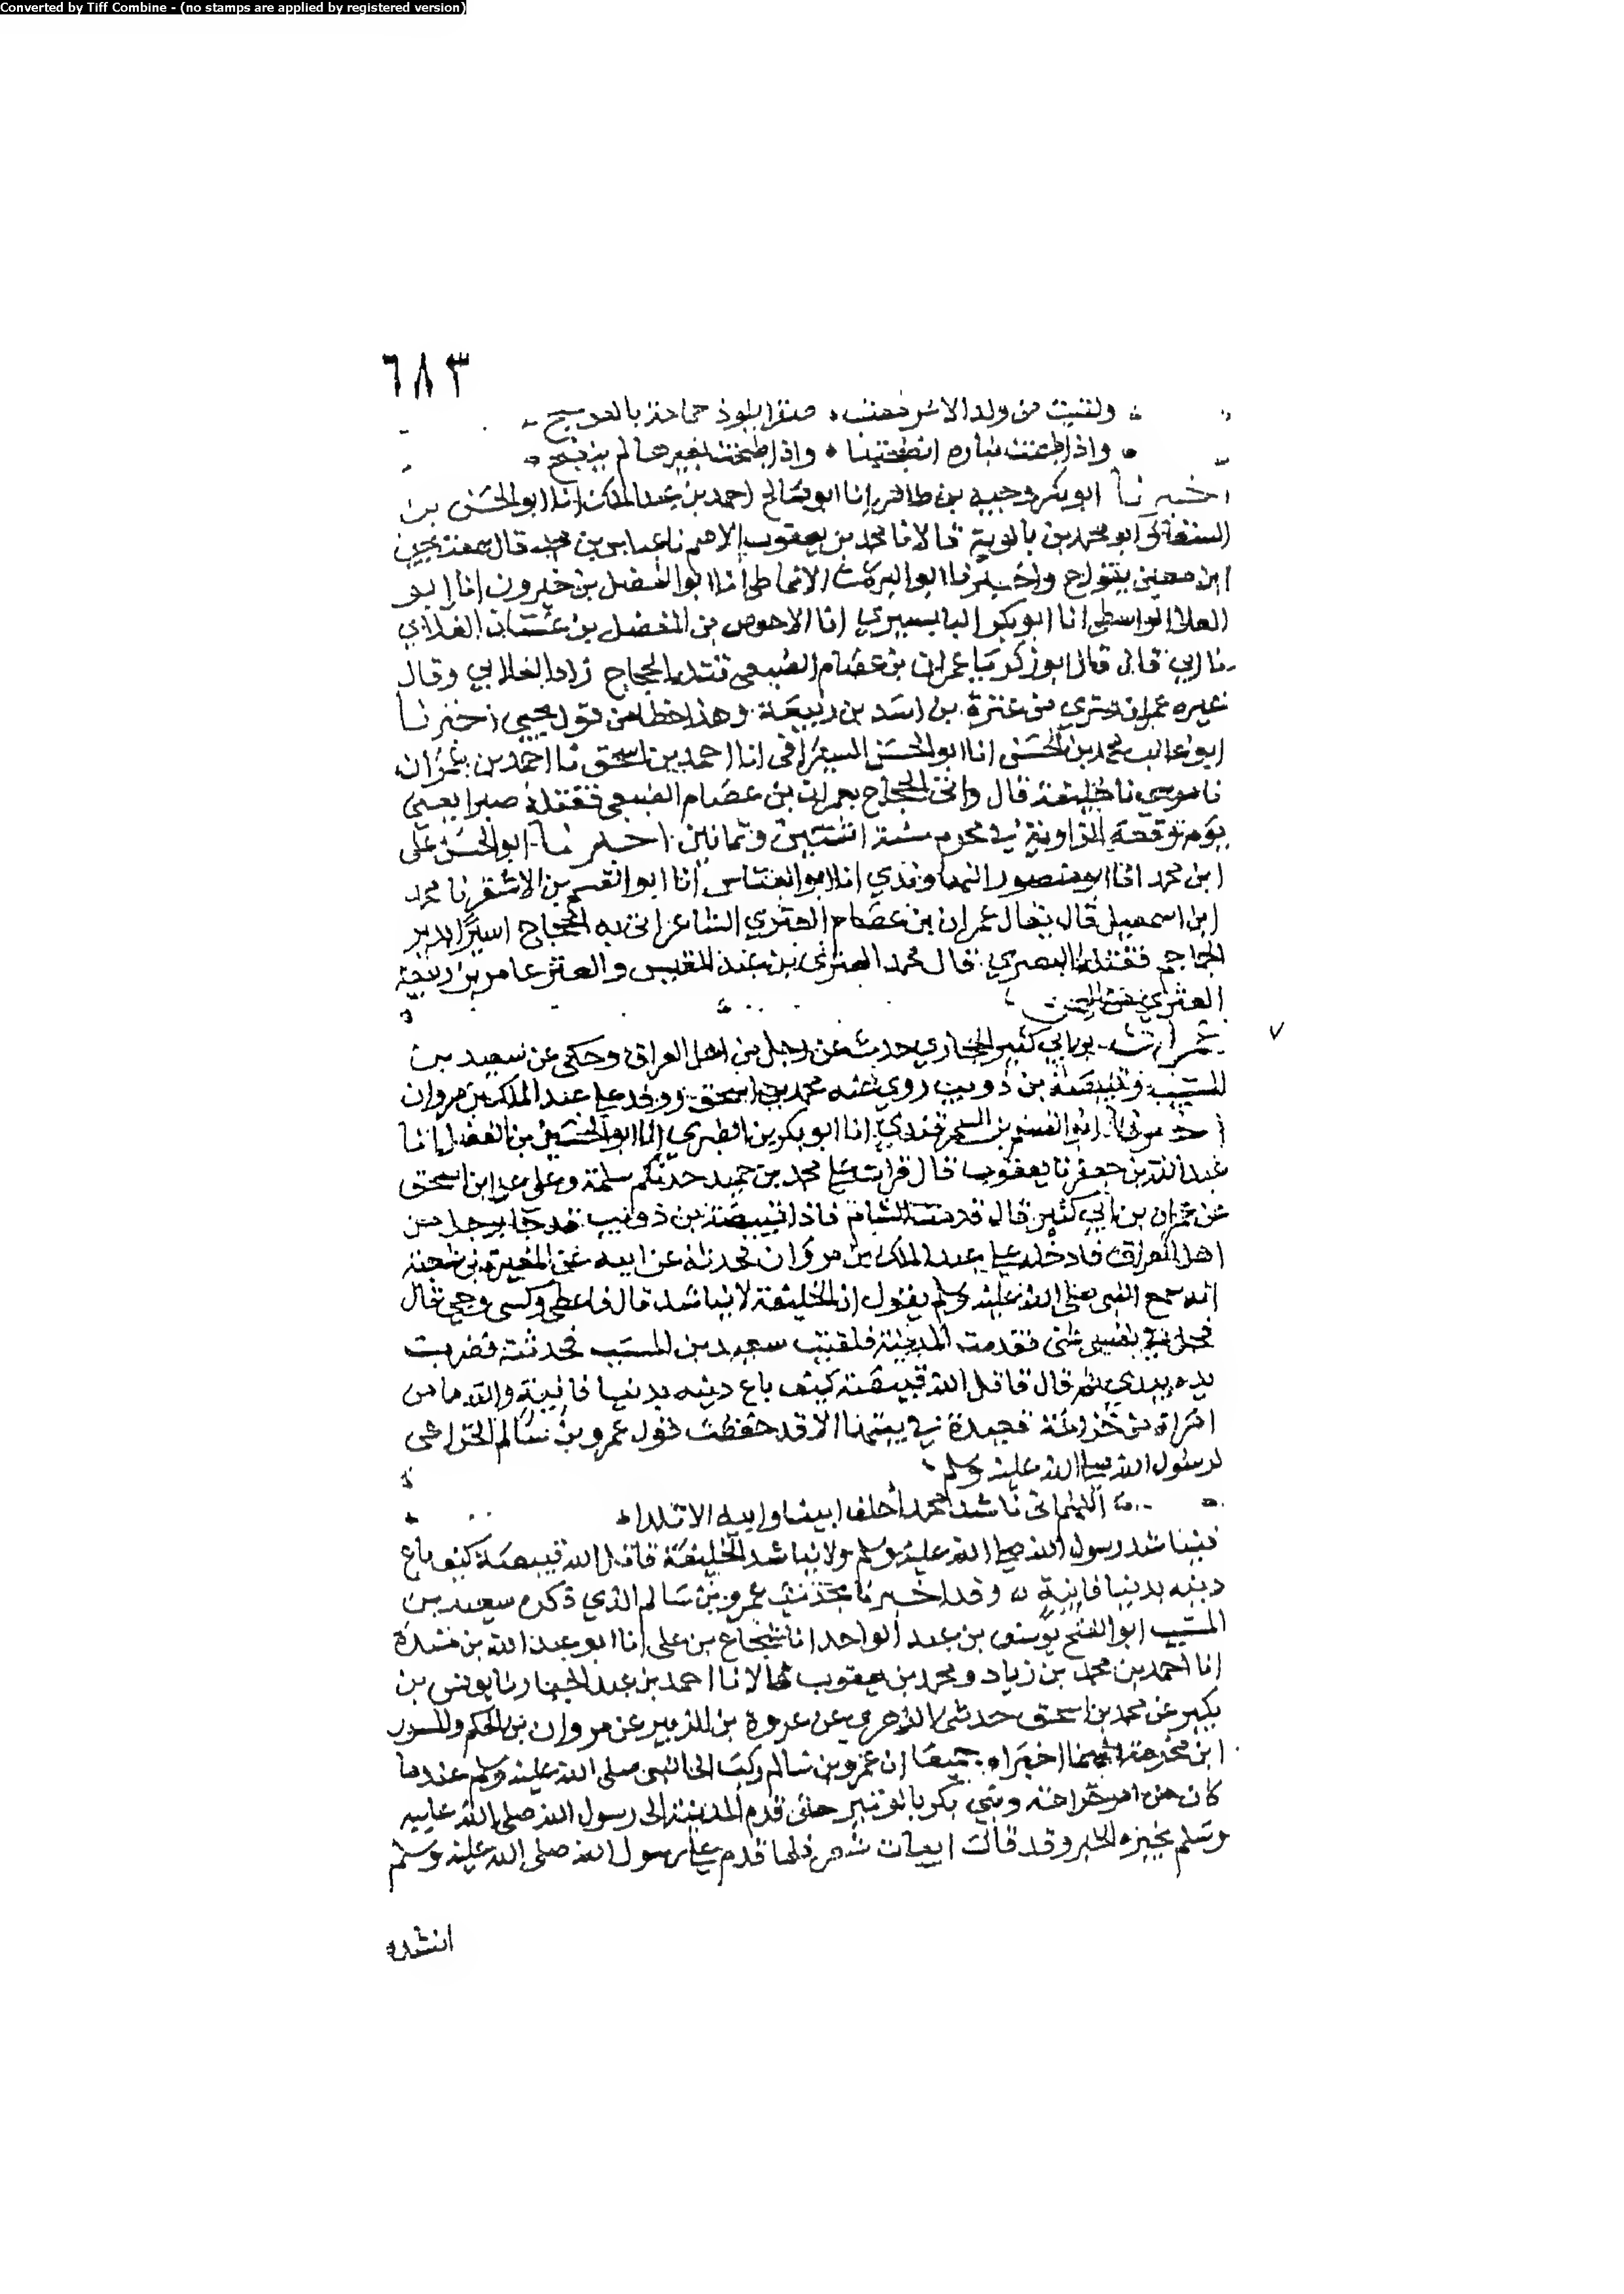 Converted by Tiff Combine - (no stamps are applied by registered version)
٦٨٣
ولقيت من ولد الاشر معنب صقرا يلوذ حمامه بالعوسج
واذا طبخت بناره انضجتها واذا طبخت بغيرها لم ينضج
اخبرنا ابو بكر وجيه بن طاهر انا ابو صالح احمد بن عبد الملك انا ابو الحسن بن
السقا وابو محمد بن بالوية قالا نا محمد بن يعقوب الاصم نا عباس بن محمد قال سمعت يحيى
ابن معين يقول ح واخبرنا ابو البركات الانماطي انا ابو الفضل بن خيرون انا ابو
العلا الواسطي انا ابو بكر البابسيري انا الاحوص بن المفضل بن غسان الغلابي
نا ابي قال قال ابو زكريا عمران بن عصام الضبعي قتله الحجاج زاد الغلابي وقال
غيره عمران عنزي من عنزة بن اسد بن ربيعة وهذا خطا من قول يحيى اخبرنا
ابو غالب محمد بن الحسن انا ابو الحسن السيرافي انا احمد بن اسحق نا احمد بن عمران
نا موسى نا خليفة قال واتى الحجاج بعمران بن عصام الضبعي فقتله صبرا يعني
يوم وقعة الزاوية في محرم سنة اثنتين وثمانين اخبرنا ابو الحسن علي
ابن محمد انا ابو منصور النهاوندي انا ابو العباس انا ابو القسم بن الاشقر نا محمد
ابن اسمعيل قال يقال عمران بن عصام العنزي الشاعر اتى به الحجاج اسيرا بدير
الجماجم فقتله البصري قال محمد العنزي بن عبد القيس والعنز عامر بن ربيعة
العنزي من اليمن
عمران بن ابي كثير الحجازي حدث عن رجل من اهل العراق وحكى عن سعيد بن
المسيب وقبيصة بن ذويب روى عنه محمد بن اسحق ووفد على عبد الملك بن مروان
اخبرنا ابو القسم بن السمرقندي انا ابو بكر بن الطبري انا ابو الحسين بن الفضل انا
عبد الله بن جعفر نا يعقوب قال قرات على محمد بن حميد حدثكم سلمة وعلي عن ابن اسحق
عن عمران بن ابي كثير قال قدمت الشام فاذا قبيصة بن ذويب قد جا برجل من
اهل العراق فادخله على عبد الملك بن مروان فحدثه عن ابيه عن المغيرة بن شعبة
انه سمع النبي صلى الله عليه وسلم يقول ان الخليفة لا يناشد قال فاعطي وكسي وحبي قال
فحك في نفسي شي فقدمت المدينة فلقيت سعيد بن المسيب فحدثته فضرب
يده بيدي ثم قال قاتل الله قبيصة كيف باع دينه بدنيا فانية والله ما من
امراة من خزاعة قعيدة في بيتها الا قد حفظت قول عمرو بن سالم الخزاعي
لرسول الله صلى الله عليه وسلم
اللهم اني ناشد محمدا حلف ابينا وابيه الاتلدا
فيناشد رسول الله صلى الله عليه وسلم ولا يناشد الخليفة قاتل الله قبيصة كيف باع
دينه بدنيا فانية وقد اخبرنا بحديث عمرو بن سالم الذي ذكره سعيد بن
المسيب ابو الفتح يوسف بن عبد الواحد انا شجاع بن علي انا ابو عبد الله بن مندة
انا احمد بن محمد بن زياد ومحمد بن يعقوب قالا نا احمد بن عبد الجبار نا يونس بن
بكير عن محمد بن اسحق حدثني الزهري عن عروة بن الزبير عن مروان بن الحكم والمسور
ابن مخرمة انهما اخبراه جميعا ان عمرو بن سالم ركب الى النبي صلى الله عليه وسلم عندما
كان من امر خزاعة وبني بكر بالوتير حتى قدم المدينة الى رسول الله صلى الله عليه
وسلم يخبره الخبر وقد قال ابيات شعر فلما قدم على رسول الله صلى الله عليه وسلم
انشده